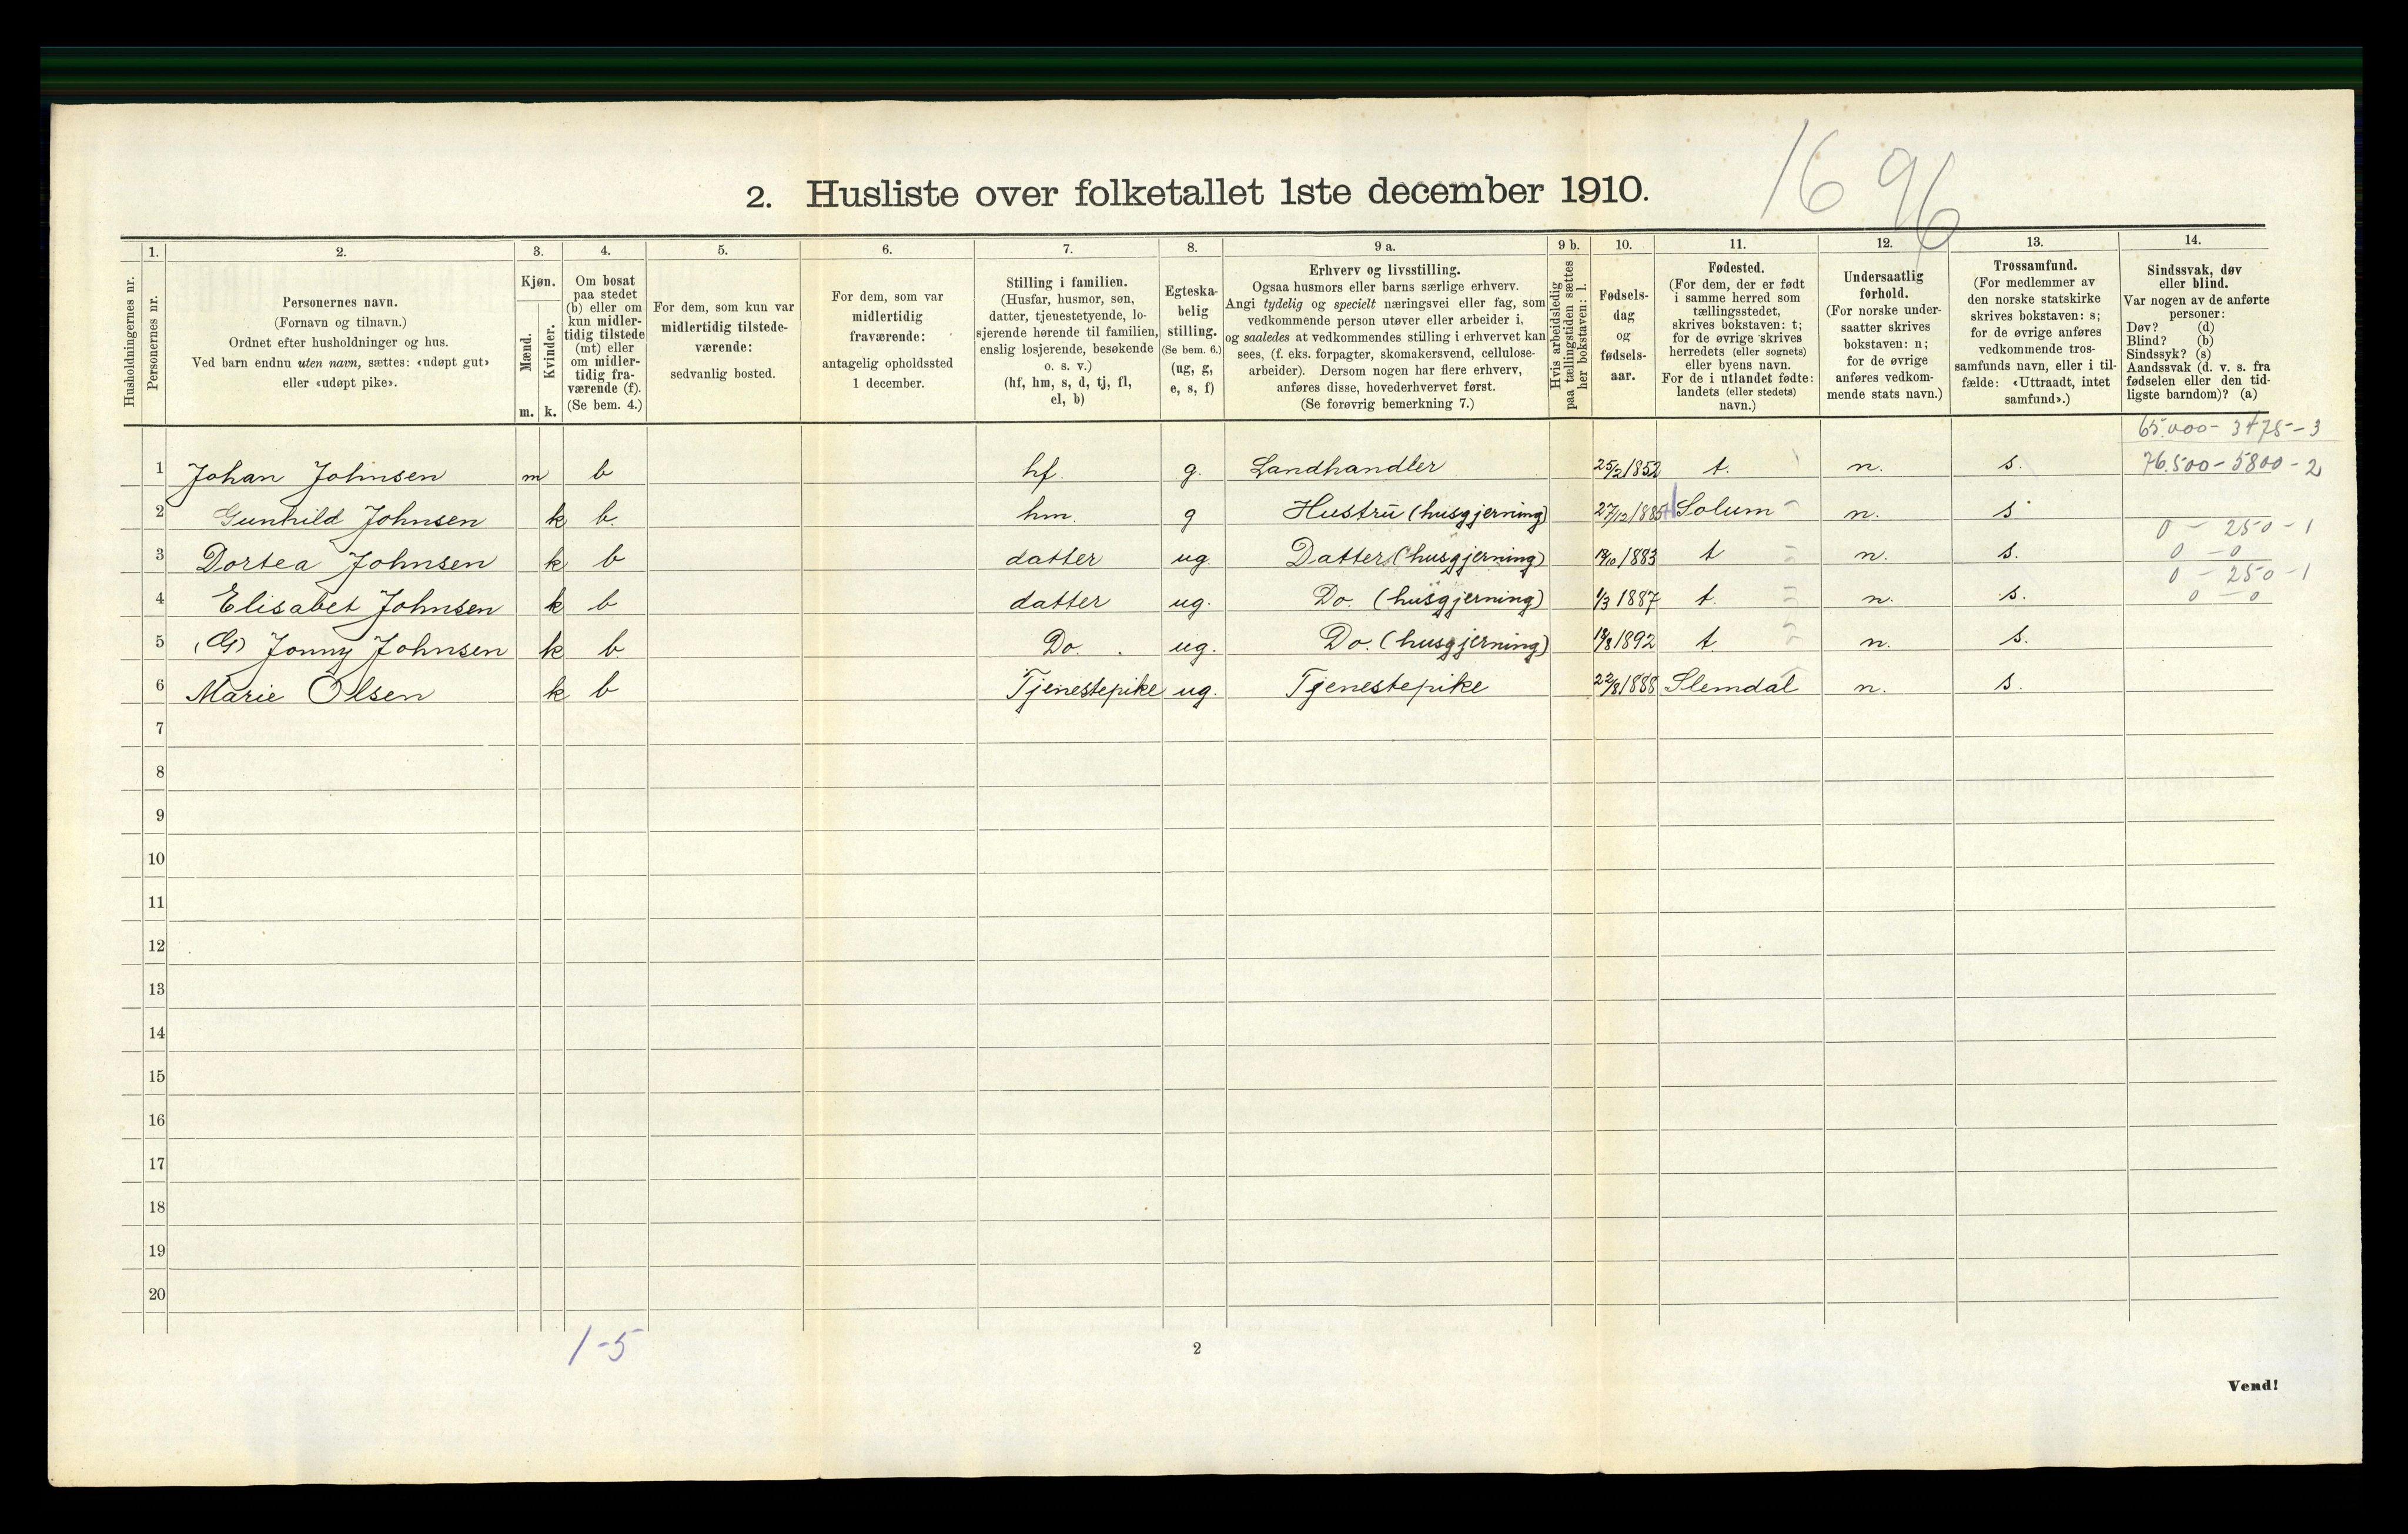 1696
2. Husliste over folketallet 1ste december 1910.
1. 2. 3. 4. 5. 6. 7. 8. 9 a. 9 b. 10. 11. 12. 13. 14.
Husholdningernes nr.
Personernes nr.
Personernes navn.
(Fornavn og tilnavn.)
Ordnet efter husholdninger og hus.
Ved barn endnu uten navn, sættes: «udøpt gut»
eller «udøpt pike».
Kjøn.
Mænd.
Kvinder.
m. k.
Om bosat
paa stedet
(b) eller om
kun midler-
tidig tilstede
(mt) eller
om midler-
tidig fra-
værende (f).
(Se bem. 4.)
For dem, som kun var
midlertidig tilstede-
værende:
sedvanlig bosted.
For dem, som var
midlertidig
fraværende:
antagelig opholdssted
1 december.
Stilling i familien.
(Husfar, husmor, søn,
datter, tjenestetyende, lo-
sjerende hørende til familien,
enslig losjerende, besøkende
o. s. v.)
(hf, hm, s, d, tj, fl,
el, b)
Egteska-
belig
stilling.
(Se bem. 6.)
(ug, g,
e, s, f)
Erhverv og livsstilling.
Ogsaa husmors eller barns særlige erhverv.
Angi tydelig og specielt næringsvei eller fag, som
vedkommende person utøver eller arbeider i,
og saaledes at vedkommendes stilling i erhvervet kan
sees, (f. eks. forpagter, skomakersvend, cellulose-
arbeider). Dersom nogen har flere erhverv,
anføres disse, hovederhvervet først.
(Se forøvrig bemerkning 7.)
Hvis arbeidsledig
paa tællingstiden sættes
her bokstaven: l.
Fødsels-
dag
og
fødsels-
aar.
Fødested.
(For dem, der er født
i samme herred som
tællingsstedet,
skrives bokstaven: t;
for de øvrige skrives
herredets (eller sognets)
eller byens navn.
For de i utlandet fødte:
landets (eller stedets)
navn.)
Undersaatlig
forhold.
(For norske under-
saatter skrives
bokstaven: n;
for de øvrige
anføres vedkom-
mende stats navn.)
Trossamfund.
(For medlemmer av
den norske statskirke
skrives bokstaven: s;
for de øvrige anføres
vedkommende tros-
samfunds navn, eller i til-
fælde: «Uttraadt, intet
samfund».)
Sindssvak, døv
eller blind.
Var nogen av de anførte
personer:
Døv? (d)
Blind? (b)
Sindssyk? (s)
Aandssvak (d. v. s. fra
fødselen eller den tid-
ligste barndom)? (a)
65.000 - 3475 - 3
1 Johan Johnsen m b hf. g. Landhandler 25/2 1852 t. n. s. 76.500 - 5800 - 2
2 Gunhild Johnsen k b. hm. g Hustru (husgjerning) 27/12 Solum n. s
0 - 250 - 1
3 Dortea Johnsen k b datter ug. Datter (husgjerning) 1883 t n. s. 0 - 0
0 - 250 - 1
4 Elisabet Johnsen k b datter ug. Do. (husgjerning) 1/3 1887 t. n. s. 0 - 0
5 (G) Jonny Johnsen k b Do. ug. Do. (husgjerning) 1892 t. n. s.
6 Marie Olsen k b Tjenestepike ug. Tjenestepike 22/8 1888 Slemdal n. s.
7
8
9
10
11
12
13
14
15
16
17
18
19
20
1-5
2
Vend!